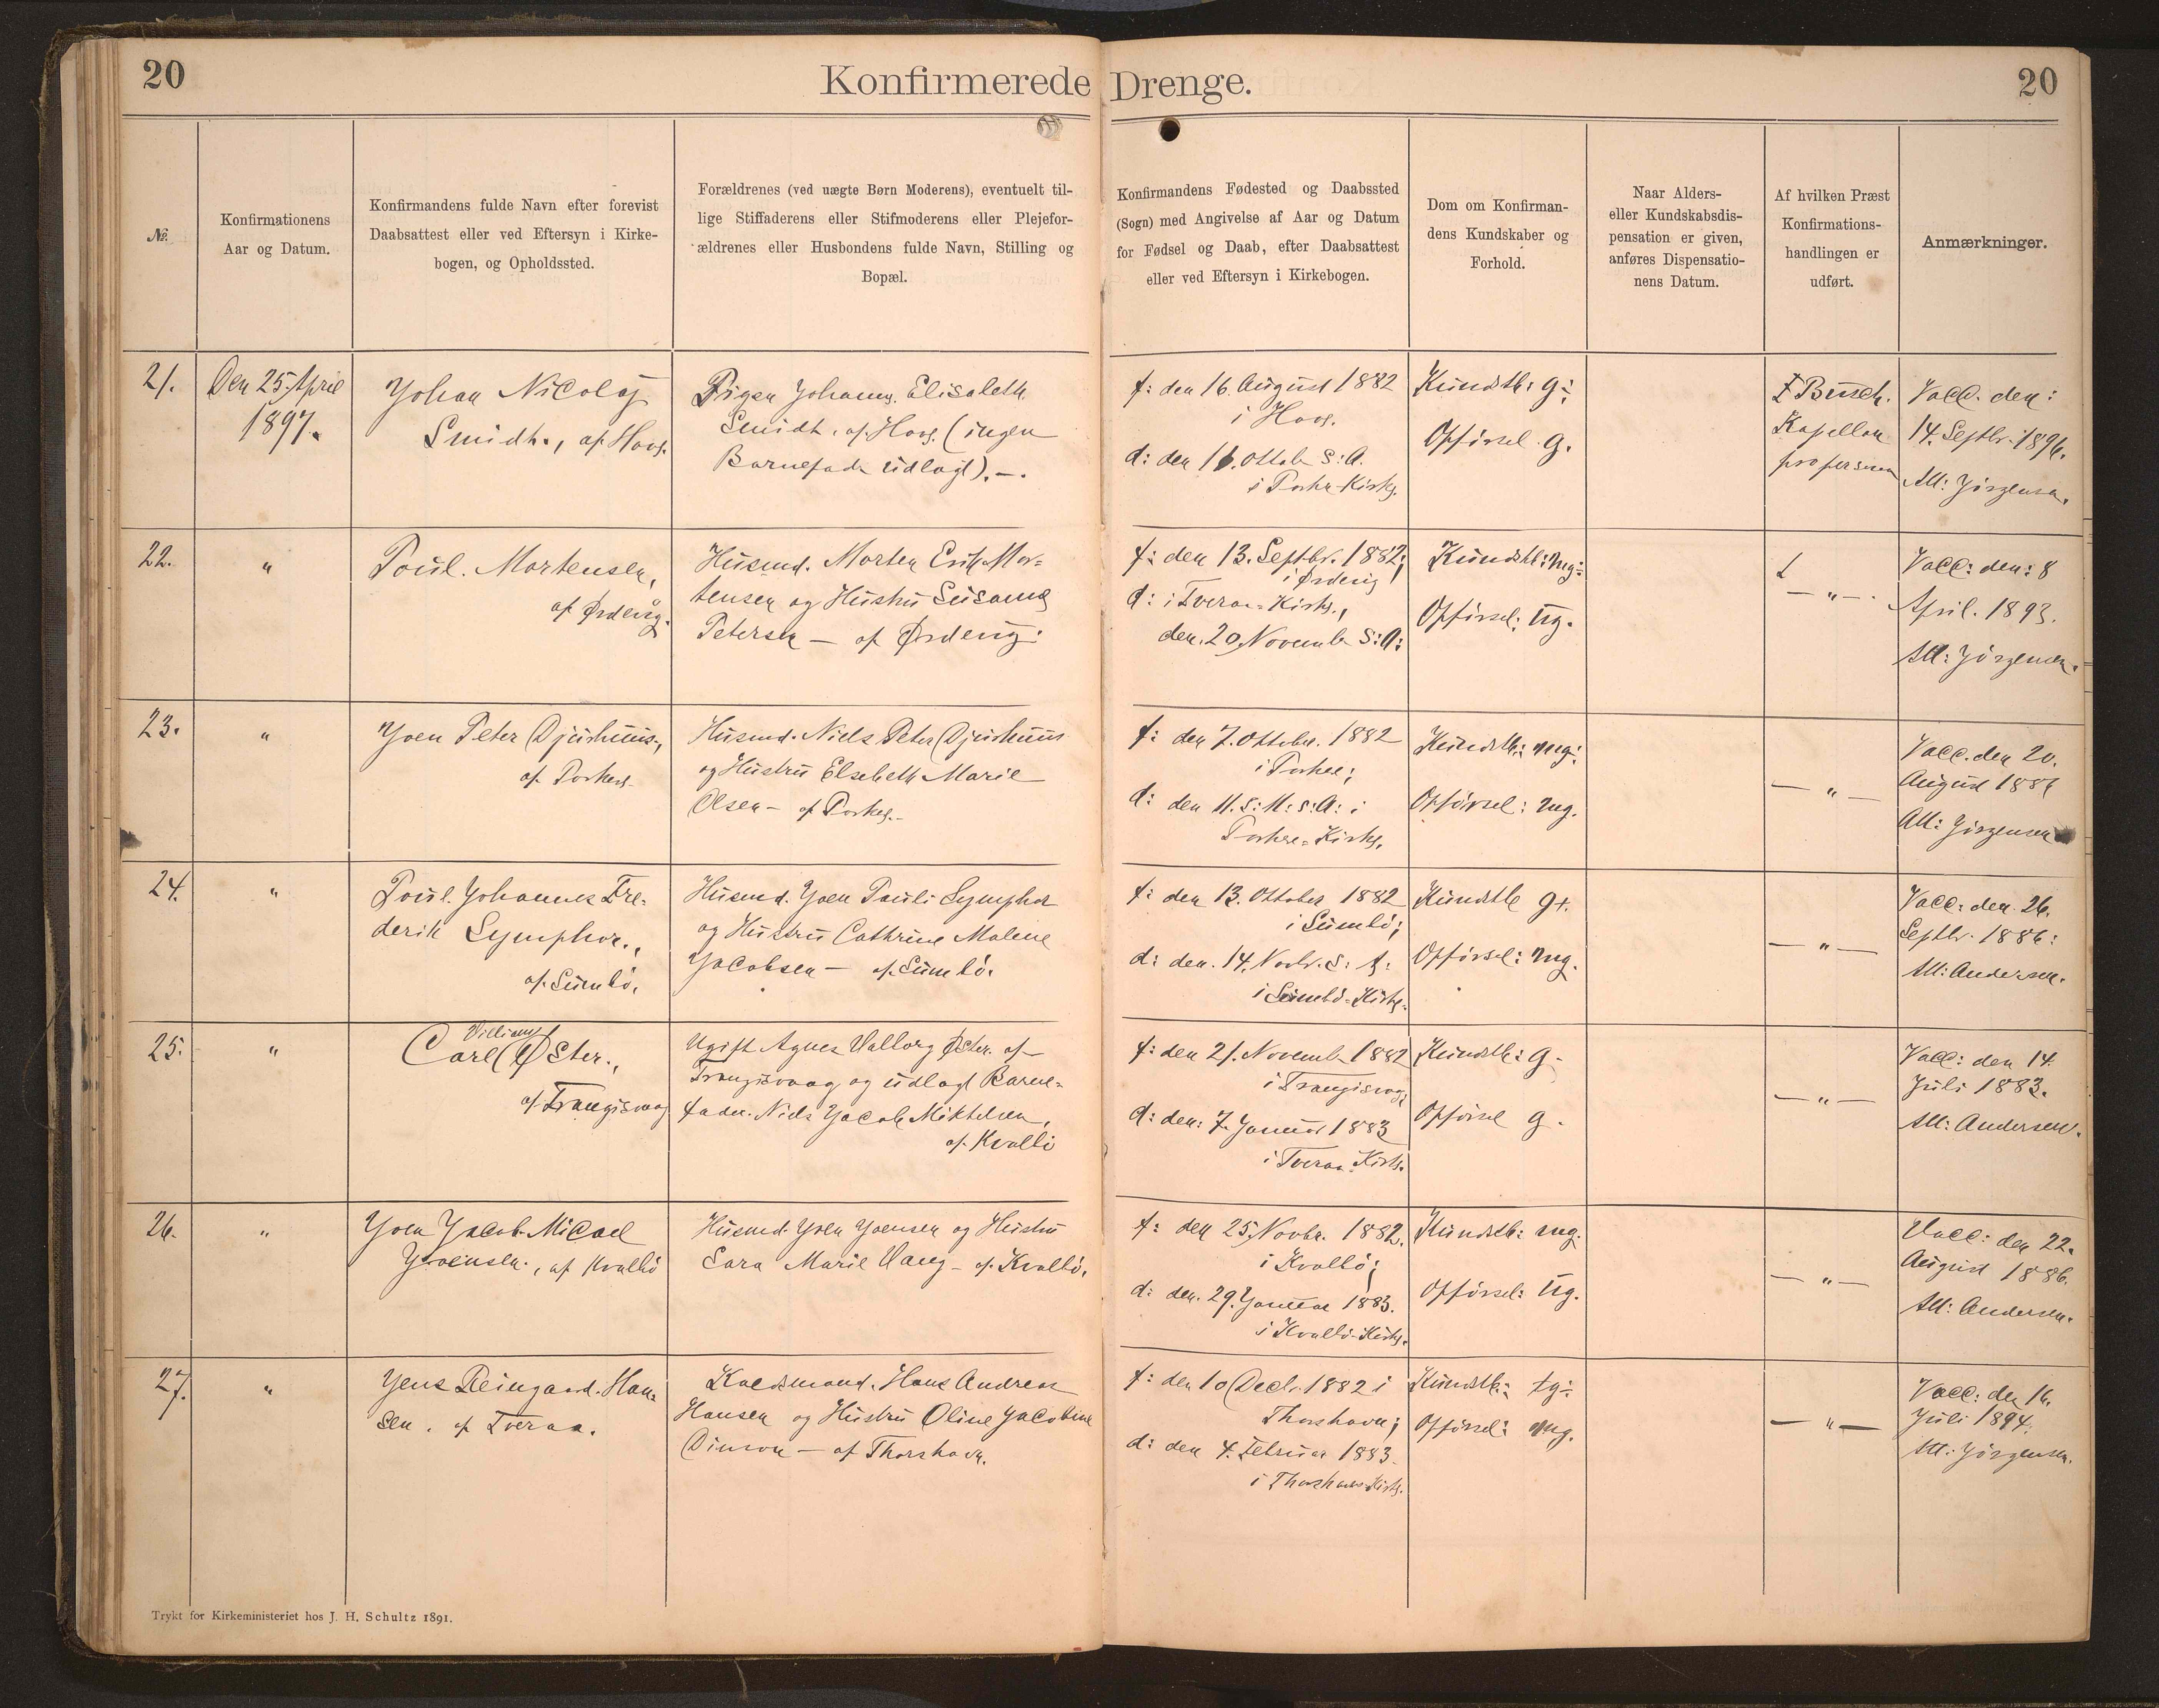 20
Konfirmerede Drenge.
20
№.
Konfirmationens
Aar og Datum.
Konfirmandens fulde Navn efter forevist
Daabsattest eller ved Eftersyn i Kirke-
bogen, og Opholdssted.
Forældrenes (ved uægte Børn Moderens), eventuelt til-
lige Stiffaderens eller Stifmoderens eller Plejefor-
ældrenes eller Husbondens fulde Navn, Stilling og
Bopæl.
Konfirmandens Fødested og Daabssted
(Sogn) med Angivelse af Aar og Datum
for Fødsel og Daab, efter Daabsattest
eller ved Eftersyn i Kirkebogen.
Dom om Konfirman-
dens Kundskaber og
Forhold.
Naar Alders-
eller Kundskabsdis-
pensation er given,
anføres Dispensatio-
nens Datum.
Af hvilken Præst
Konfirmations-
handlingen er
udført.
Anmærkninger.
21.
Den 25. April
1897.
Johan Nicolaj
Smidt., af Hove.
Pigen Johanne Elisabeth
Smidt, af Hove. (ingen
Barnefader udlagt).-.
f: den 16. August 1882
i Hove.
d: den 16. Oktob S:A.
i Porkere Kirke.
Kundsk: g÷
Opførsel g.
Busch.
Kapellan
pro persona
Vacc. den:
14. Septbr. 1896.
Att: Jörgensen.
22.
"
Poul. Mortensen,
af Ørdevig.
Husmd. Morten Erik Mor=
tensen og Hustru Susanna
Petersen — af Ørdevig.
f: den 13. Septbr. 1882;
i Ørdevig
d: i Tveraa=Kirke.,
den. 20 Novembr S:A:
Kundsk: mg÷
Opførsel: ug.
— " —
Vacc: den: 8
April. 1893.
Att: Jörgensen.
23.
"
Joen Peter Djurhuus,
af Porkere.
Husmd. Niels Peter Djurhuus
og Hustru Elsebeth Marie
Olsen — af Porkere.-
f: den 7. Oktober. 1882
i Porkere;
d: den 11. S:M: S:A: i
Porkere=Kirke.
Kundsk: mg:
Opførsel: mg.
— " —
Vacc. den 20.
August 1886
Att: Jörgensen
24.
"
Poul. Johannes Fre=
derik Symphor.,
af. Sumbö.
Husmd. Joen Pauli Symphor
og Hustru Cathrine Malene
Jacobsen — af. Sumbö.
f: den 13. Oktober 1882
i Sumbö;
d: den. 14. Novbr. S: A:
i Sumbö=Kirke.
Kundsk g+.
Opførsel: mg.
— " —
Vacc: den. 26.
Septbr. 1886:
Att: Andersen.
25.
"
Villiam
Carl Øster.,
af Trangisvaag
Ugift Agnes Valborg Øster. af
Trangisvaag og udlagt Barne=
fader. Niels Jacob Mikkelsen,
af. Kvalbö
f: den 21. Novemb 1882
i Trangisvag;
d: den: 7. Januar 1883
i Tveraa Kirke.
Kundsk: g-
Opførsel g.
— " —
Vacc: den 14.
Juli 1883.
Att: Andersen.
26.
"
Joen Jacob Micael
Joensen., af Kvalbö
Husmd. Joen Joensen og Hustru
Sara Marie Vang — af. Kvalbö.
f: den 25. Novbr. 1882.
i Kvalbö;
d: den. 29. Januar 1883.
i Kvalbö=Kirke.
Kundsk: mg.
Opførsel: ug.
— " —
Vacc: den 22.
August 1886.
Att: Andersen.
27.
"
Jens Reingaard. Han=
sen. af Tveraa.
Hans Andreas
Hansen og Hustru Oline Jacobine
Dimon — af Thorshavn.
f: den 10 Decbr. 1882 i
Thorshavn;
d: den 4. Februar 1883.
i Thorshavns Kirke.
Kundsk: tg÷
Opførsel: mg.
— " —
Vacc: den 16.
Juli 1894.
Att: Jörgensen.
Trykt for Kirkeministeriet hos J. H. Schultz 1891.